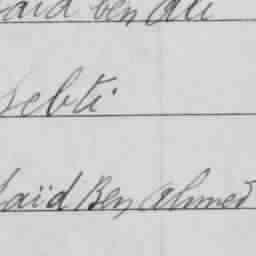 Said ben Ali
Sebti
Saïd Ben Ahmed